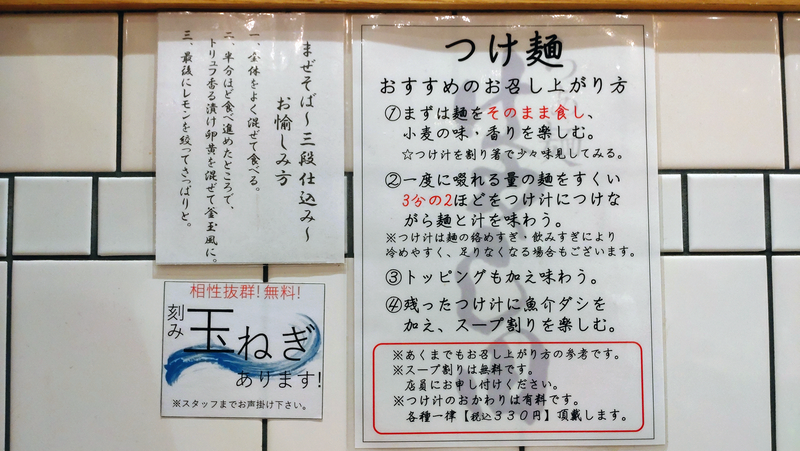 まぜそば〜三段仕込み〜
お愉しみ方
一、全体をよく混ぜて食べる。
二、半分ほど食べ進めたところで、
トリュフ香る漬け卵黄を混ぜて釜玉風に。
三、最後にレモンを絞ってさっぱりと。
相性抜群!無料!
刻み
玉ねぎ
あります!
※スタッフまでお声掛け下さい。
つけ麺
おすすめのお召し上がり方
①まずは麺をそのまま食し、
小麦の味・香りを楽しむ。
☆つけ汁を割り箸で少々味見してみる。
②一度に啜れる量の麺をすくい
3分の2ほどをつけ汁につけな
がら麺と汁を味わう。
※つけ汁は麺の絡めすぎ・飲みすぎにより
冷めやすく、足りなくなる場合もございます。
③トッピングも加え味わう。
④残ったつけ汁に魚介ダシを
加え、スープ割りを楽しむ。
※あくまでもお召し上がり方の参考です。
※スープ割りは無料です。
店員にお申し付けください。
※つけ汁のおかわりは有料です。
各種一律【税込330円】頂戴します。